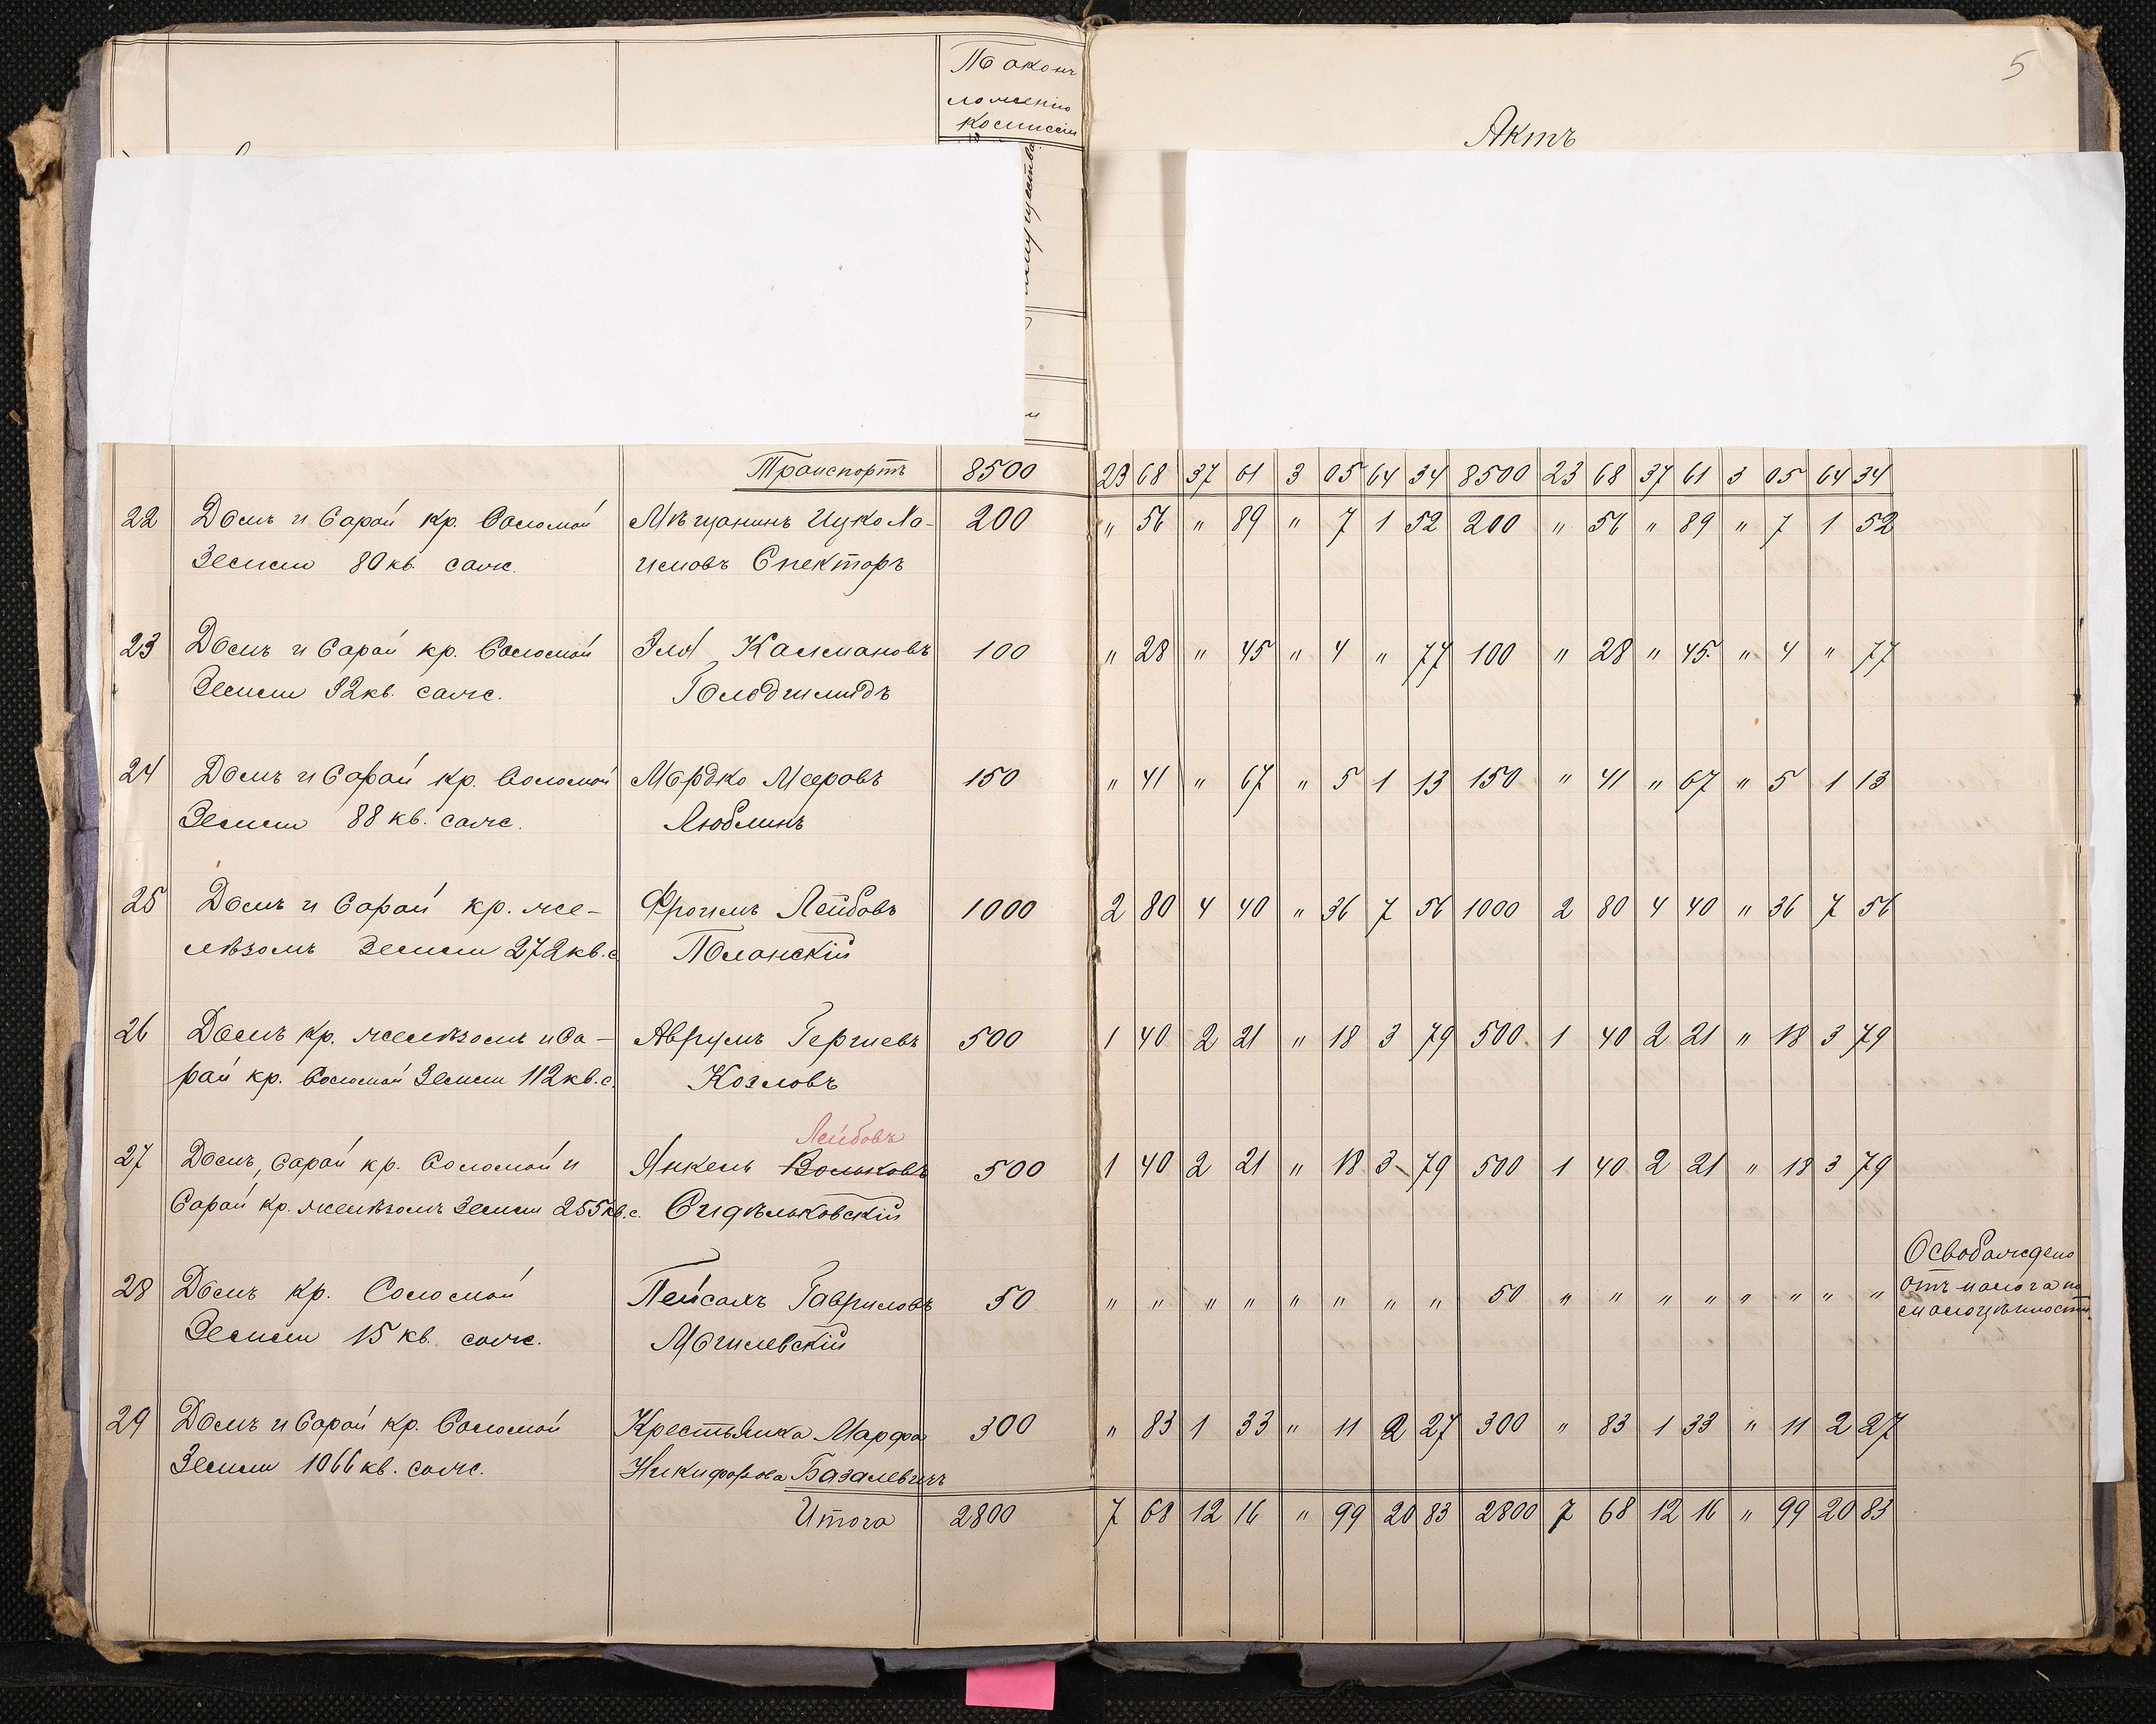 По оконч
ложенію
Комиссіи
имущества
5
Актъ
Транспортъ 8500 23 68 37 61 3 05 64 34 8500 23 68 37 61 3 05 64 34
22 Домъ и Сарай кр. Соломой Мѣщанинъ Ицко На- 200 " 56 " 89 " 7 1 52 200 " 56 " 89 " 7 1 52
Земли 80 кв. саж. химовъ Спекторъ
23 Домъ и Сарай кр. Соломой Эля Калмановъ 100 " 28 " 45 " 4 " 77 100 " 28 " 45 " 4 " 77
Земли 32 кв. саж. Голодшмидъ
24 Домъ и Сарай кр. Соломой Мордко Мееровъ 150 " 41 " 67 " 5 1 13 150 " 41 " 67 " 5 1 13
Земли 88 кв. саж. Люблинъ
25 Домъ и Сарай кр. же- Фроимъ Лейбовъ 1000 2 80 4 40 " 36 7 56 1000 2 80 4 40 " 36 7 56
лѣзомъ Земли 272 кв. с Полонскій
26 Домъ кр. желѣзомъ и Са- Аврумъ Гершевъ 500 1 40 2 21 " 18 3 79 500 1 40 2 21 " 18 3 79
рай кр. Соломой Земли 112 кв. с. Козловъ
Лейбовъ
27 Домъ, Сарай кр. Соломой и Янкель Вольковъ 500 1 40 2 21 " 18 3 79 500 1 40 2 21 " 18 3 79
Сарай кр. желѣзомъ Земли 255 кв. с. Сидѣльковскій
28 Домъ кр. Соломой Пейсахъ Гавриловъ 50 " " " " " " " " 50 " " " " " " " " Освобождено
отъ налога по
малоцѣнности
Земли 15 кв. саж. Могилевскій
29 Домъ и Сарай кр. Соломой Крестьянка Марфа 300 " 83 1 33 " 11 2 27 300 " 83 1 33 " 11 2 27
Земли 1066 кв. саж. Никифорова Базалевичъ
Итого 2800 7 68 12 16 " 99 20 83 2800 7 68 12 16 " 99 20 83